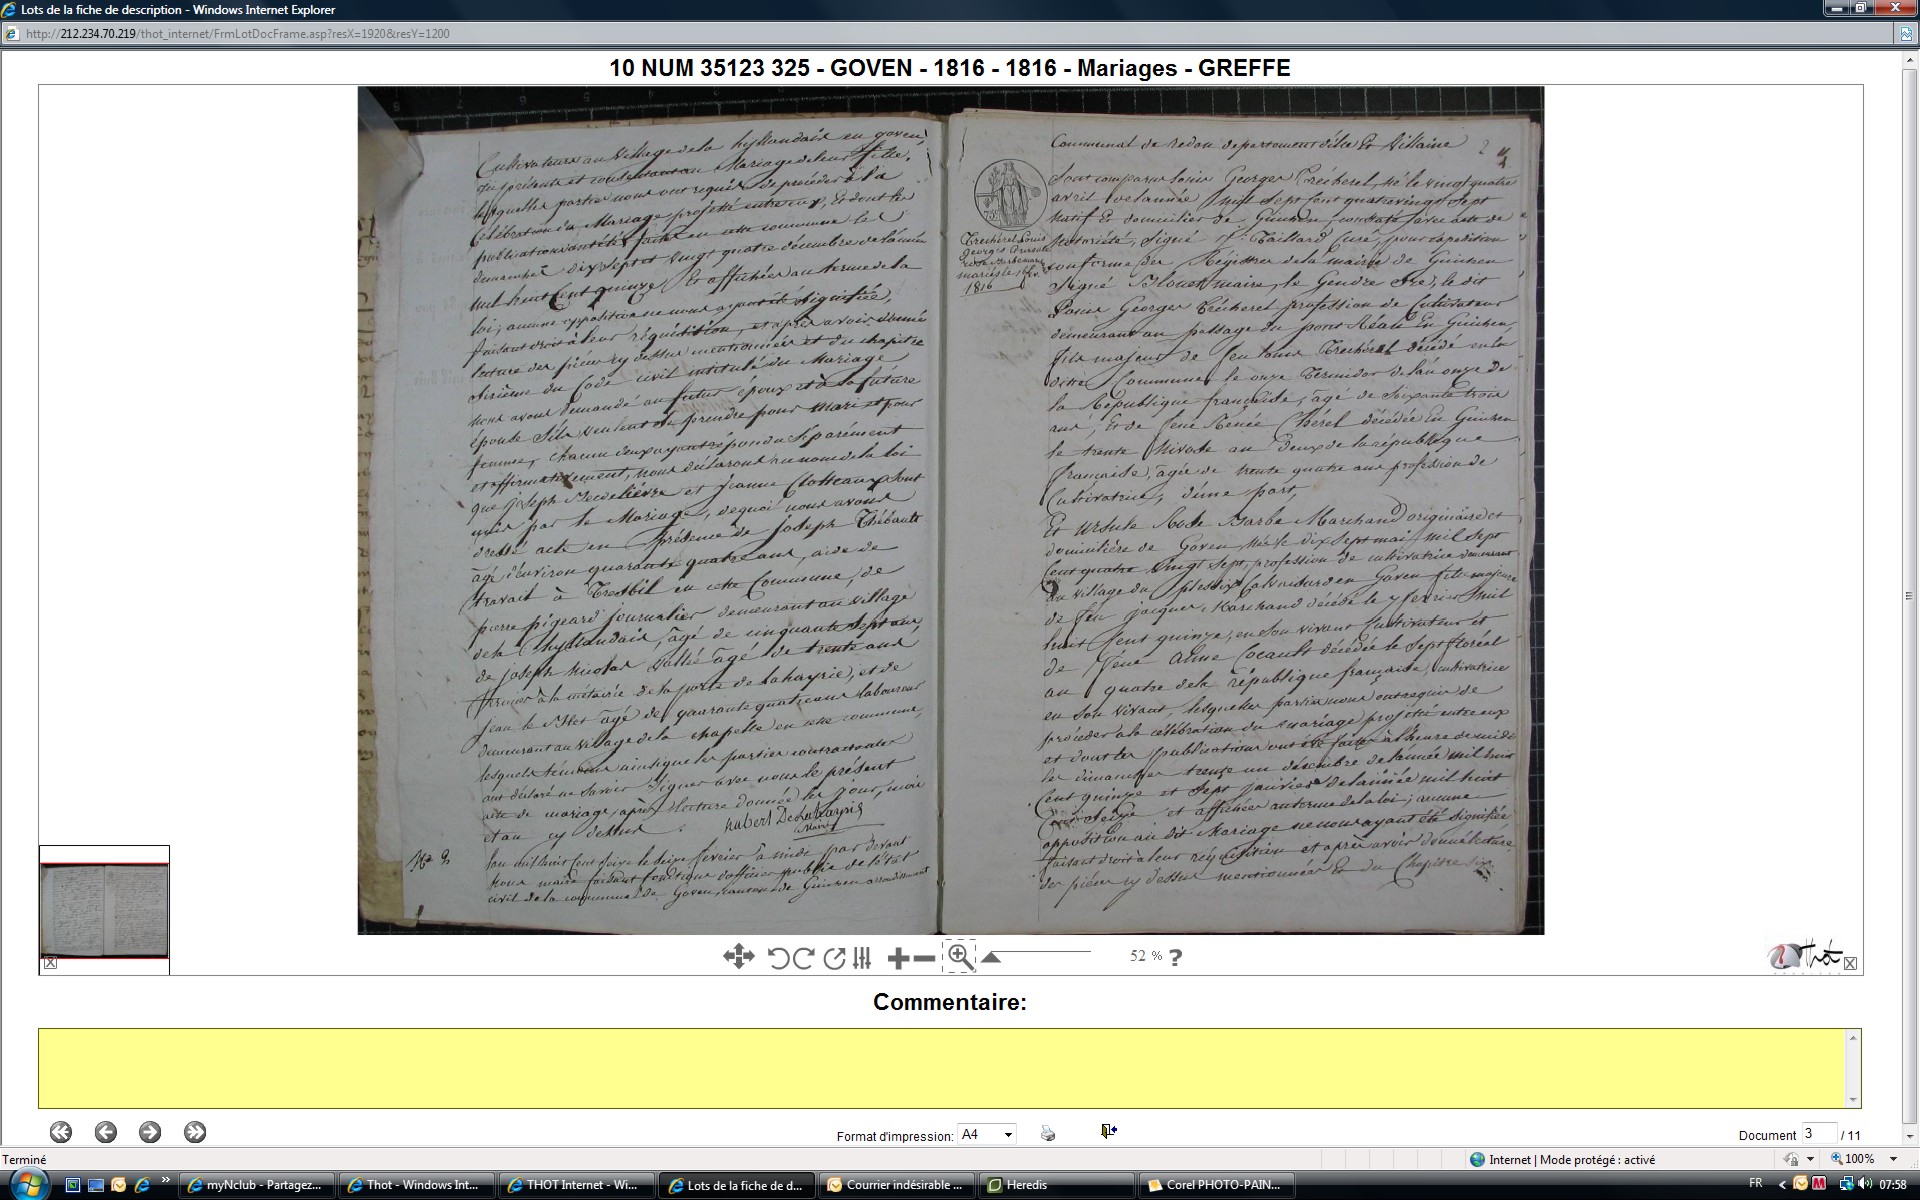 Lots de la fiche de description - Windows Internet Explorer
http://212.234.70.219/thot_internet/FrmLotDocFrame.asp?resX=1920&resY=1200
10 NUM 35123 325 - GOVEN - 1816 - 1816 - Mariages - GREFFE
Cultivateurs au Village de la hyllandais en goven,
ici présents et consentant au Mariage de leur fille,
lesquelles parties nous ont requis de procéder à la
Célébration du Mariage projetté entre eux, Et dont les
publications ont été faites en cette commune les
dimanches dix sept et vingt quatre décembre de l'année
mil huit Cent quinze Et affichées au terme de la
loi, aucune opposition ne nous ayant été signifiée,
faisant droit à leur réquisition, et après avoir donné
lecture des pièces cy dessus mentionnées et du chapitre
sixième du Code civil intitulé du Mariage
nous avons demandé au futur époux et à la future
épouse s'ils veulent se prendre pour mari et pour
femme, chacun deux ayant répondu séparément
et affirmativement, nous déclarons au nom de la loi
que joseph et jeanne sont
unis par le Mariage, de quoi nous avons
dressé acte en présence de joseph Thébault
âgé d'environ quarante quatre ans, aide de
travail à en cette Commune, de
pierre pigeard journalier demeurant au village
de la hyllandais, âgé de cinquante sept ans,
de joseph nicolas âgé de trente ans
fermier à la métairie de la porte de la hayrie, et de
jean le âgé de quarante quatre ans laboureur
demeurant au village de la chapelle en cette commune,
lesquels témoins ainsi que les parties contractantes
ont déclaré ne savoir signer avec nous le présent
acte de mariage, après lecture donnée les jour, mois
et an cy dessus
hubert De La hayrie
Maire
N° 2
Lan mil huit Cent seize le seize février à midi par devant
Nous maire faisant fonctions d'officier public de l'état
civil de la commune de Goven, canton de Guichen arrondissement
Communal de redon département d'ille Et Villaine
2
75
Trecherel Louis
Georges
mariés le 16 fév.
1816
Sont comparus Louis Georges Trécherel, né le vingt quatre
avril de l'année Mil Sept Cent quatre vingt Sept
Natif Et domicilier de Guichen, constaté par acte de
Notoriété, signé Taillard Curé, pour expédition
conforme des Régistres de la mairie de Guichen
Signé Blouet maire, le Gendre, le dit
Louis Georges Trécherel, profession de Cultivateur
demeurant au passage du pont Réan En Guichen,
fils majeur de feu Louis Trécherel décédé en la
ditte Commune le onze Termidor de l'an onze de
la République française, âgé de Soixante trois
ans, Et de fene Renée Chérel décédée En Guichen
le trente Nivose an Deux de la république
française, âgée de trente quatre ans profession de
Cultivatrice, d'une part,
Et Ursule Rose Barbe Marchand originaire et
domicilière de Goven Née le dix sept mai Mil Sept
Cent quatre Vingt Sept, profession de cultivatrice demeurant
au village du plessix en Goven fille majeure
de feu jacques Marchand décédé le 7 février Mil
huit Cent quinze, en son vivant Cultivateur et
de fene Anne Cocault décédée le Sept floréal
an quatre de la république française, cultivatrice
en son vivant, lesquelles parties nous ont requis de
procéder à la célébration du mariage projetté entre eux
et dont les publications ont été faites à l'heure de midi
les dimanches trente un décembre de l'année mil huit
Cent quinze et Sept janvier de l'année mil huit
Cent Seize et affichées au terme de la loi, aucune
opposition au dit Mariage ne nous ayant été signifiée
faisant droit à leur réquisition et après avoir donné lecture
des pièces cy dessus mentionnées Et du Chapitre six
52 % ?
Thot
Commentaire:
Format d'impression: A4
Document 3 / 11
Terminé
Internet | Mode protégé : activé
100%
myNclub - Partagez...
Thot - Windows Int...
THOT Internet - Wi...
Lots de la fiche de d...
Courrier indésirable ...
Heredis
Corel PHOTO-PAIN...
FR
07:58